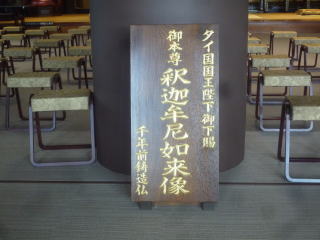 タイ国国王陛下御下賜
御本尊 釈迦牟尼如来像
千年前鋳造仏